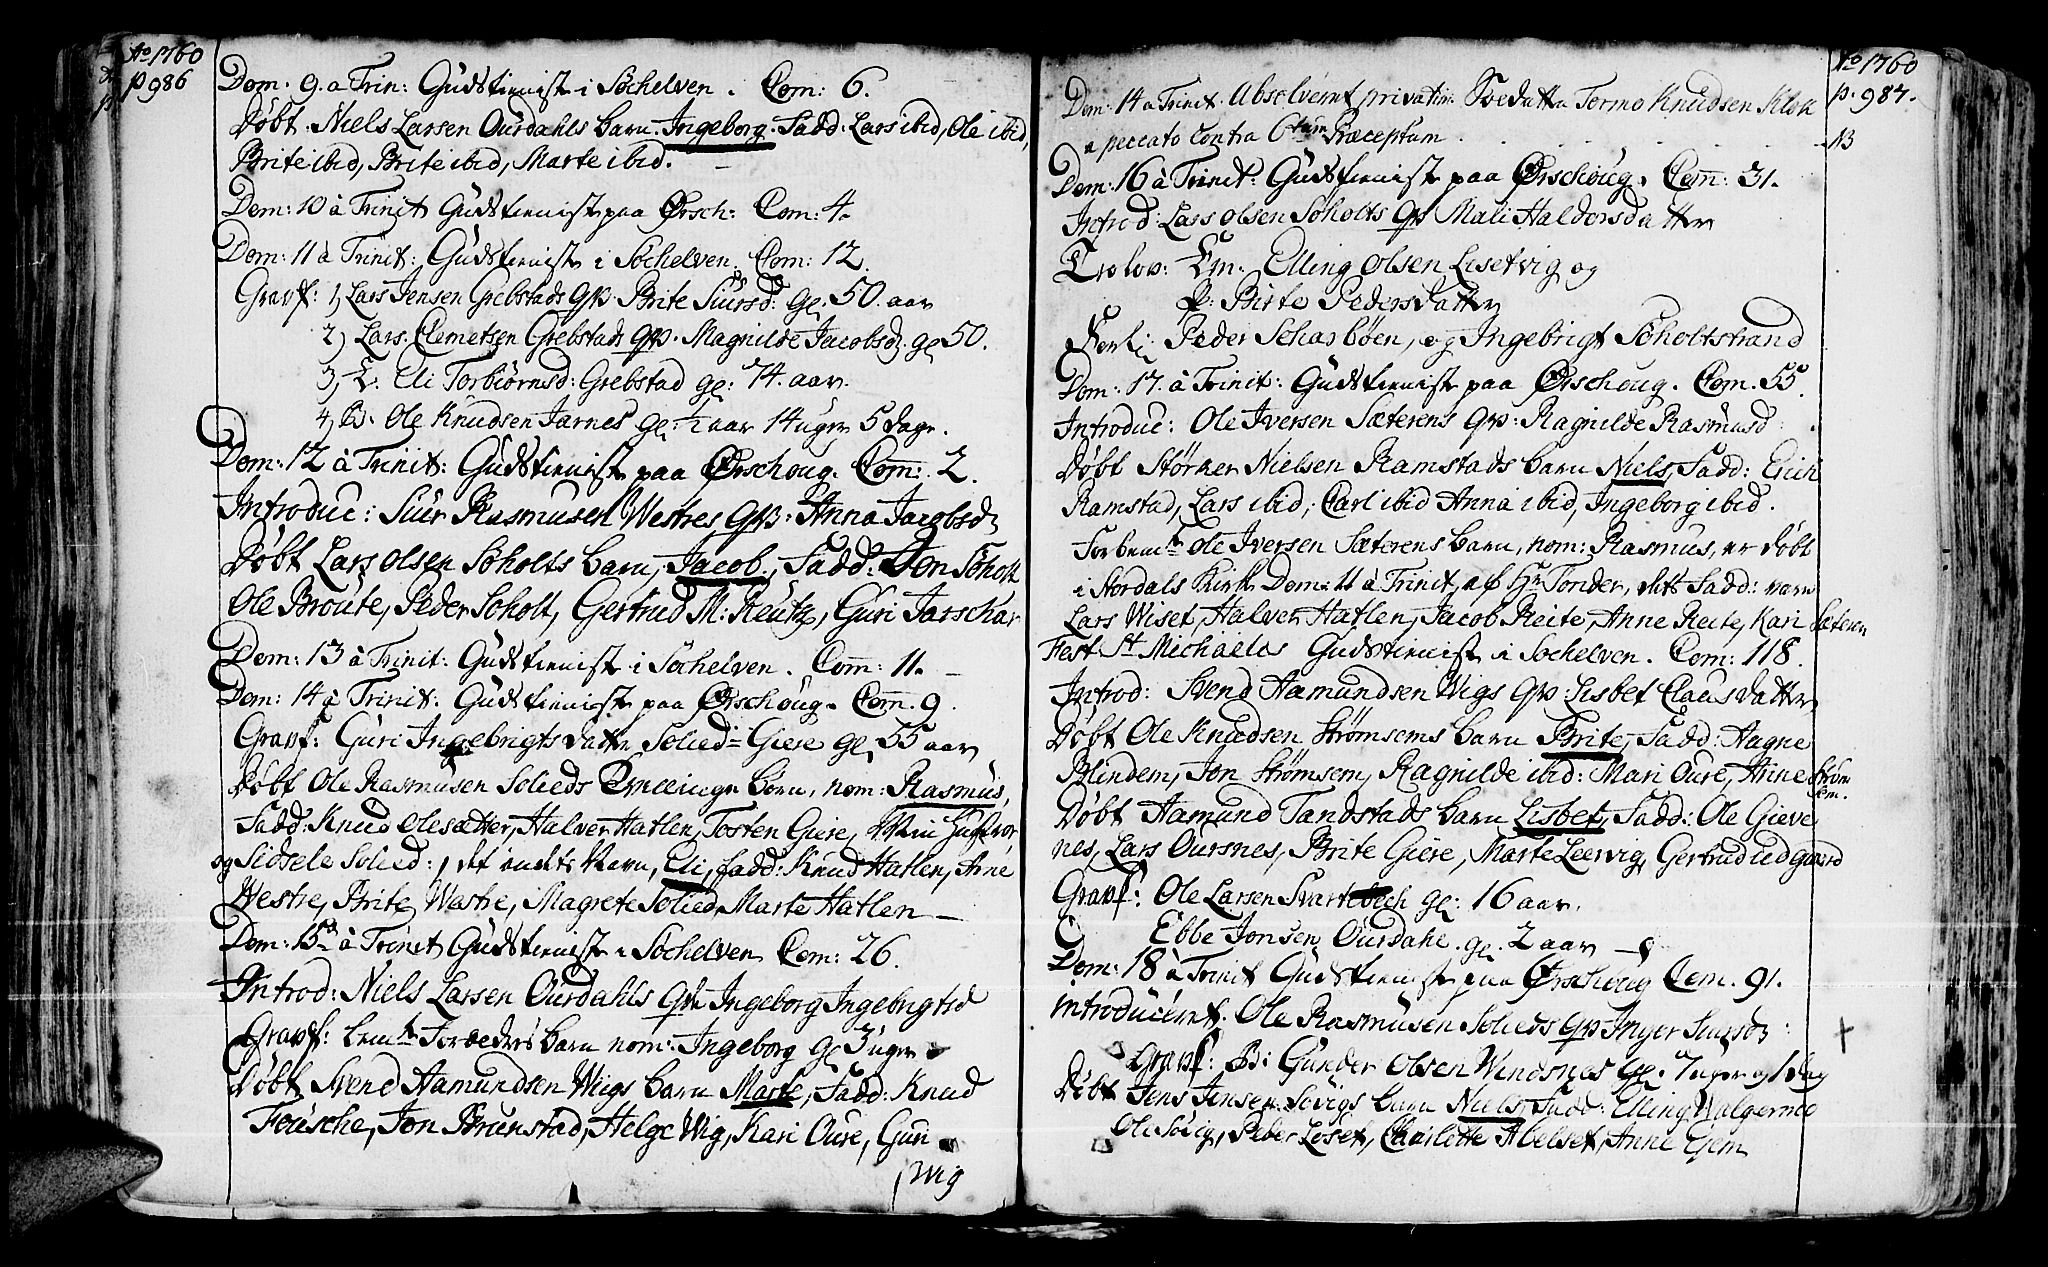 Ao 1760
p 986
Dom: 9. a Trin: Gudstienist i Söchelven. Com: 6.
Döbt. Niels Larsen Ourdahls barn. Ingeborg. Fadd: Lars ibid, Ole ibid,
Brite ibid, Brite ibid, Marte ibid. –
Dom: 10 à Trinit Gudstienist paa Ørsch: Com: 4.
Dom: 11 à Trinit: Gudstienist i Söchelven. Com: 12.
Graff: 1, Lars Jensen Grebstads qvs. Brite Siursd: gl. 50. aar
2, Lars Clemetsen Grebstads qvs. Magnilde Jacobsd. gl 50.
3, E. Eli Torbiörnsd: Grebstad gl: 74. aar.
4, B. Ole Knudsen Jarnes gl: 1/2 aar 14 uger 5 dage.
Dom: 12 à Trinit: Gudstienist paa Ørschoug. Com: 2.
Introduc: Siur Rasmusen Westres qvs: Anna Jacobsd
Döbt Lars Olsen Söholts barn, Jacob, Fadd: Jon Söholt
Ole Broute, Peder Söholt, Gertrud M: Reutz, Guri Jarschar
Dom: 13 à Trinit: Gudstienist i Söchelven. Com: 11. –
Dom: 14 à Trinit: Gudstienist paa Ørschoug. Com. 9.
Graff: Guri Ingebrigtsdatter Solied= Giere gl 55 aar
Döbt Ole Rasmusen Solieds Tvillinge börn, nom: Rasmus,
Fadd: Knud Olesætter, Halver Hatlen, Tosten Giere,
og Sidsele Solied:, det andets Navn, Eli, fadd: Knud Hatlen, Arne
Westre, Brite Westre, Magrete Solied, Marte Hatlen –
Dom: 15 à Trinit Gudstienist i Söchelven Com: 26.
Introd: Niels Larsen Ourdahls qvs Ingeborg Ingebrigtsd
Graff: bemte Foræders barn nom: Ingeborg gl 3 uger
Döbt Svend Aamundsen Wiigs barn Marte, Fadd: Knud
Fousche, Jon Brunstad, Helge Wig, Kari Oure, Guri
Wig
Ao 1760
p. 987.
Dom: 14 a Trinit. Absolveret privatim Soedatter Tormo Knudsen Klok
a peccato contra 6tum Præceptum . . . . . . 13
Dom: 16 à Trinit: Gudstienist paa Ørschoug. Com: 31.
Introd: Lars Olsen Söholts qvs Mali Haldorsdatter
Trolov: Em: Elling Olsen Lisetvig og
P: Birte Pedersdatter
Forl: Peder Schasböen, og Ingebrigt Söholtstrand
Dom: 17. à Trinit: Gudstienist paa Ørschoug. Com. 55.
Introduc: Ole Iversen Sæterens qvs: Ragnilde Rasmusd:
Döbt Störker Nielsen Ramstads barn Niels, Fadd: Erich
Ramstad, Lars ibid, Carl ibid Anna ibid, Ingeborg ibid.
Forbemte Ole Iversen Sæterens barn, nom: Rasmus, er döbt
i Stordals Kirke Dom: 11 à Trinit, af Hr Tonder, dets Fadd: vare
Lars Wiset, Halver Hatlen, Jacob Reite, Anne Reite, Kari Sæteren
Fest St Michaelis Gudstienist i Söchelven. Com: 118.
Introd: Svend Aamundsen Wigs qvs: Lisbet Clausdatter
Döbt Ole Knudsen Strömsems barn Brite, Fadd: Aagne
Blindem, Jon Strömsem, Ragnilde ibid: Mari Oure, Anne Ström
sem.
Döbt Aamund Tandstads barn Lisbet, Fadd: Ole Gieve
nes, Lars Oursnes, Brite Giere, Marte Leervig, Gertrud udgaard
Graff: Ole Larsen Svartebech gl: 16 aar.
Ebbe Jonsen Ourdahl. gl. 2 aar –
Dom: 18 à Trinit Gudstienist paa Ørschoug Com. 91.
introduceret. Ole Rasmusen Solieds qvs Inger Siursd:
Graff: B: Gunder Olsen Windsnes gl. 7 uger og 1 dag
Döbt Jens Jensen Sövigs barn Niels, Fadd: Elling Walgermoe
Ole Sövig, Peder Liset, Charlotte Abelset, Anne Gjem